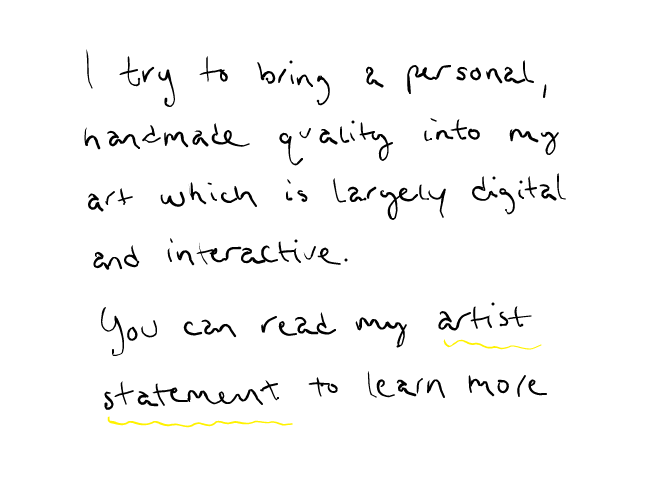 I try to bring a personal,
handmade quality into my
art which is largely digital
and interactive.
You can read my artist
statement to learn more